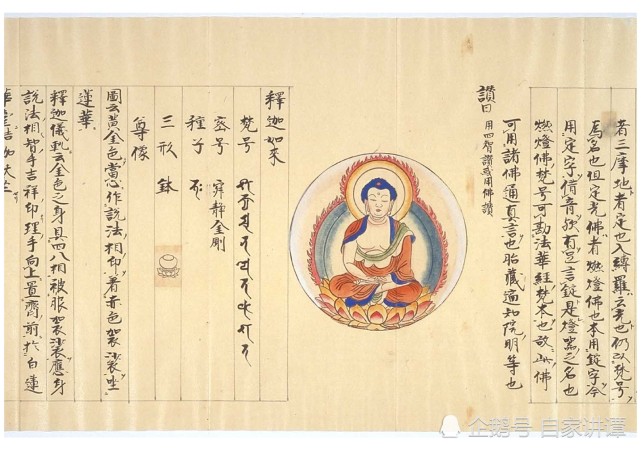 者三摩地者定也入縛羅云光也仍以梵号
爲名也但定光佛者燃燈佛也本用錠字今
用定字借音欤有足言錠是燈器之名也
燃燈佛梵号可勘法華經梵本也故此佛
可用諸佛通真言也胎藏遍知院明等也
讃曰 用四智讃或用佛讃
釋迦如來
梵号
密号 寂靜金剛
種子
三形 鉢
尊像
圖云黄金色當心作説法相印著赤色袈裟坐
蓮華
釋迦儀軌云金色之身具四八相被服袈裟應身
説法相智手吉祥印理手向上置齊前於白蓮
企鹅号 自家讲谭